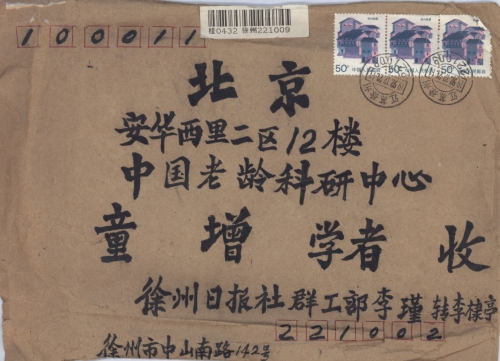 100011
桂0432 徐州221009
50分 50分 50分
北京
安华西里二区12楼
中国老龄科研中心
童增 学者 收
徐州日报社群工部李瑾 转李棣亭
221002
徐州市中山南路142号